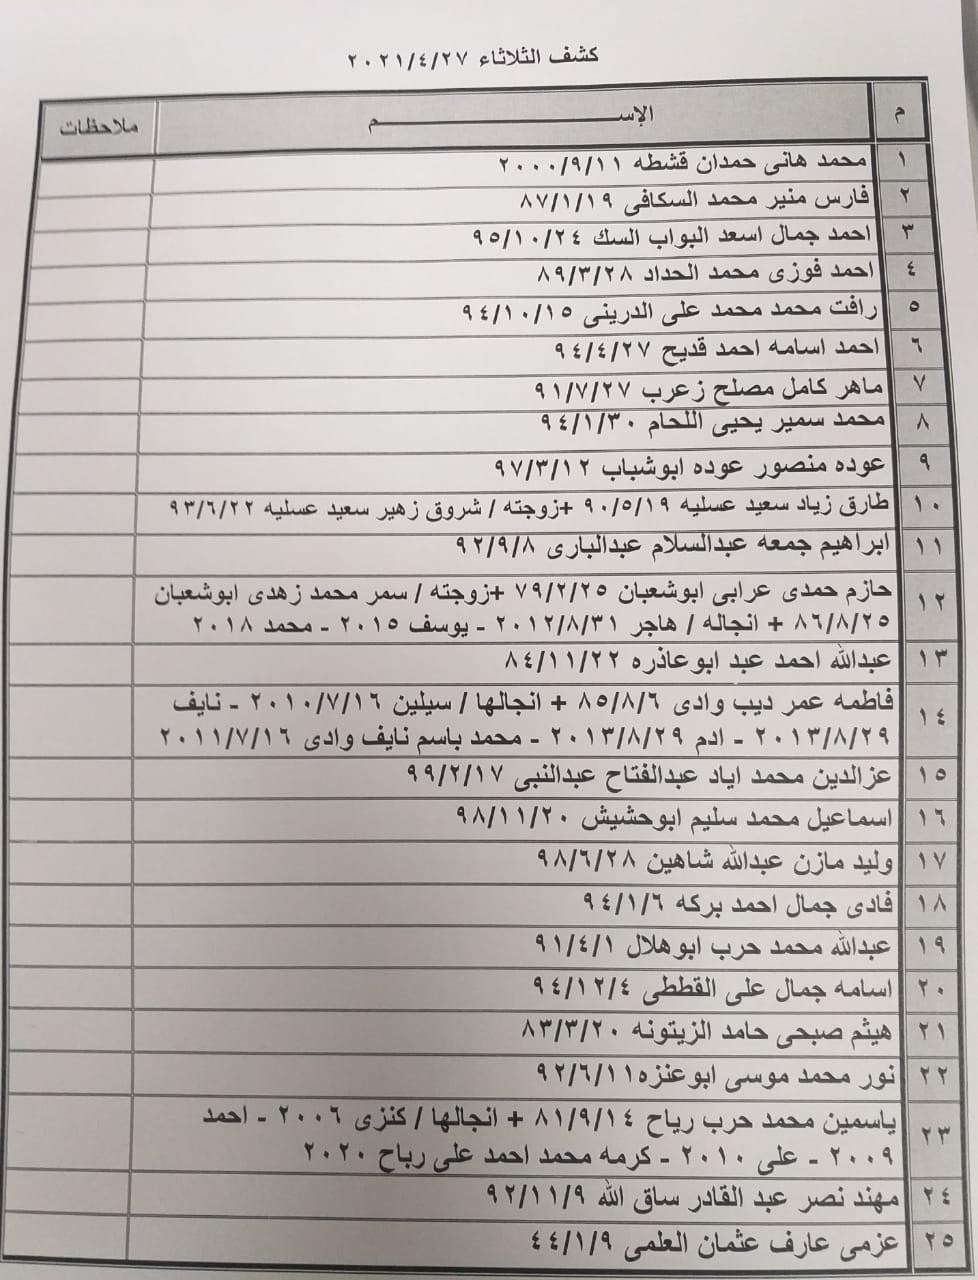 كشف الثلاثاء ٢٠٢١/٤/٢٧
م الإســـــــــــــــــم ملاحظات
١ محمد هانى حمدان قشطه ٢٠٠٠/٩/١١
٢ فارس منير محمد السكافى ٨٧/١/١٩
٣ احمد جمال اسعد البواب السك ٩٥/١٠/٢٤
٤ احمد فوزى محمد الحداد ٨٩/٣/٢٨
٥ رافت محمد محمد على الدرينى ٩٤/١٠/١٥
٦ احمد اسامه احمد قديح ٩٤/٤/٢٧
٧ ماهر كامل مصلح زعرب ٩١/٧/٢٧
٨ محمد سمير يحيى اللحام ٩٤/١/٣٠
٩ عوده منصور عوده ابوشباب ٩٧/٣/١٢
١٠ طارق زياد سعيد عسليه ٩٠/٥/١٩ +زوجته / شروق زهير سعيد عسليه ٩٣/٦/٢٢
١١ ابراهيم جمعه عبدالسلام عبدالبارى ٩٢/٩/٨
١٢ حازم حمدى عرابى ابوشعبان ٧٩/٢/٢٥ +زوجته / سمر محمد زهدى ابوشعبان
٨٦/٨/٢٥ + انجاله / هاجر ٢٠١٢/٨/٣١ - يوسف ٢٠١٥ - محمد ٢٠١٨
١٣ عبدالله احمد عبد ابوعاذره ٨٤/١١/٢٢
١٤ فاطمه عمر ديب وادى ٨٥/٨/٦ + انجالها / سيلين ٢٠١٠/٧/١٦ - نايف
٢٠١٣/٨/٢٩ - ادم ٢٠١٣/٨/٢٩ - محمد باسم نايف وادى ٢٠١١/٧/١٦
١٥ عزالدين محمد اياد عبدالفتاح عبدالنبى ٩٩/٢/١٧
١٦ اسماعيل محمد سليم ابوحشيش ٩٨/١١/٢٠
١٧ وليد مازن عبدالله شاهين ٩٨/٦/٢٨
١٨ فادى جمال احمد بركه ٩٤/١/٦
١٩ عبدالله محمد حرب ابوهلال ٩١/٤/١
٢٠ اسامه جمال على القططى ٩٤/١٢/٤
٢١ هيثم صبحى حامد الزيتونه ٨٣/٣/٢٠
٢٢ نور محمد موسى ابوعنزه٩٢/٦/١١
٢٣ ياسمين محمد حرب رباح ٨١/٩/١٤ + انجالها / كنزى ٢٠٠٦ - احمد
٢٠٠٩ - على ٢٠١٠ - كرمه محمد احمد على رباح ٢٠٢٠
٢٤ مهند نصر عبد القادر ساق الله ٩٢/١١/٩
٢٥ عزمى عارف عثمان العلمى ٤٤/١/٩